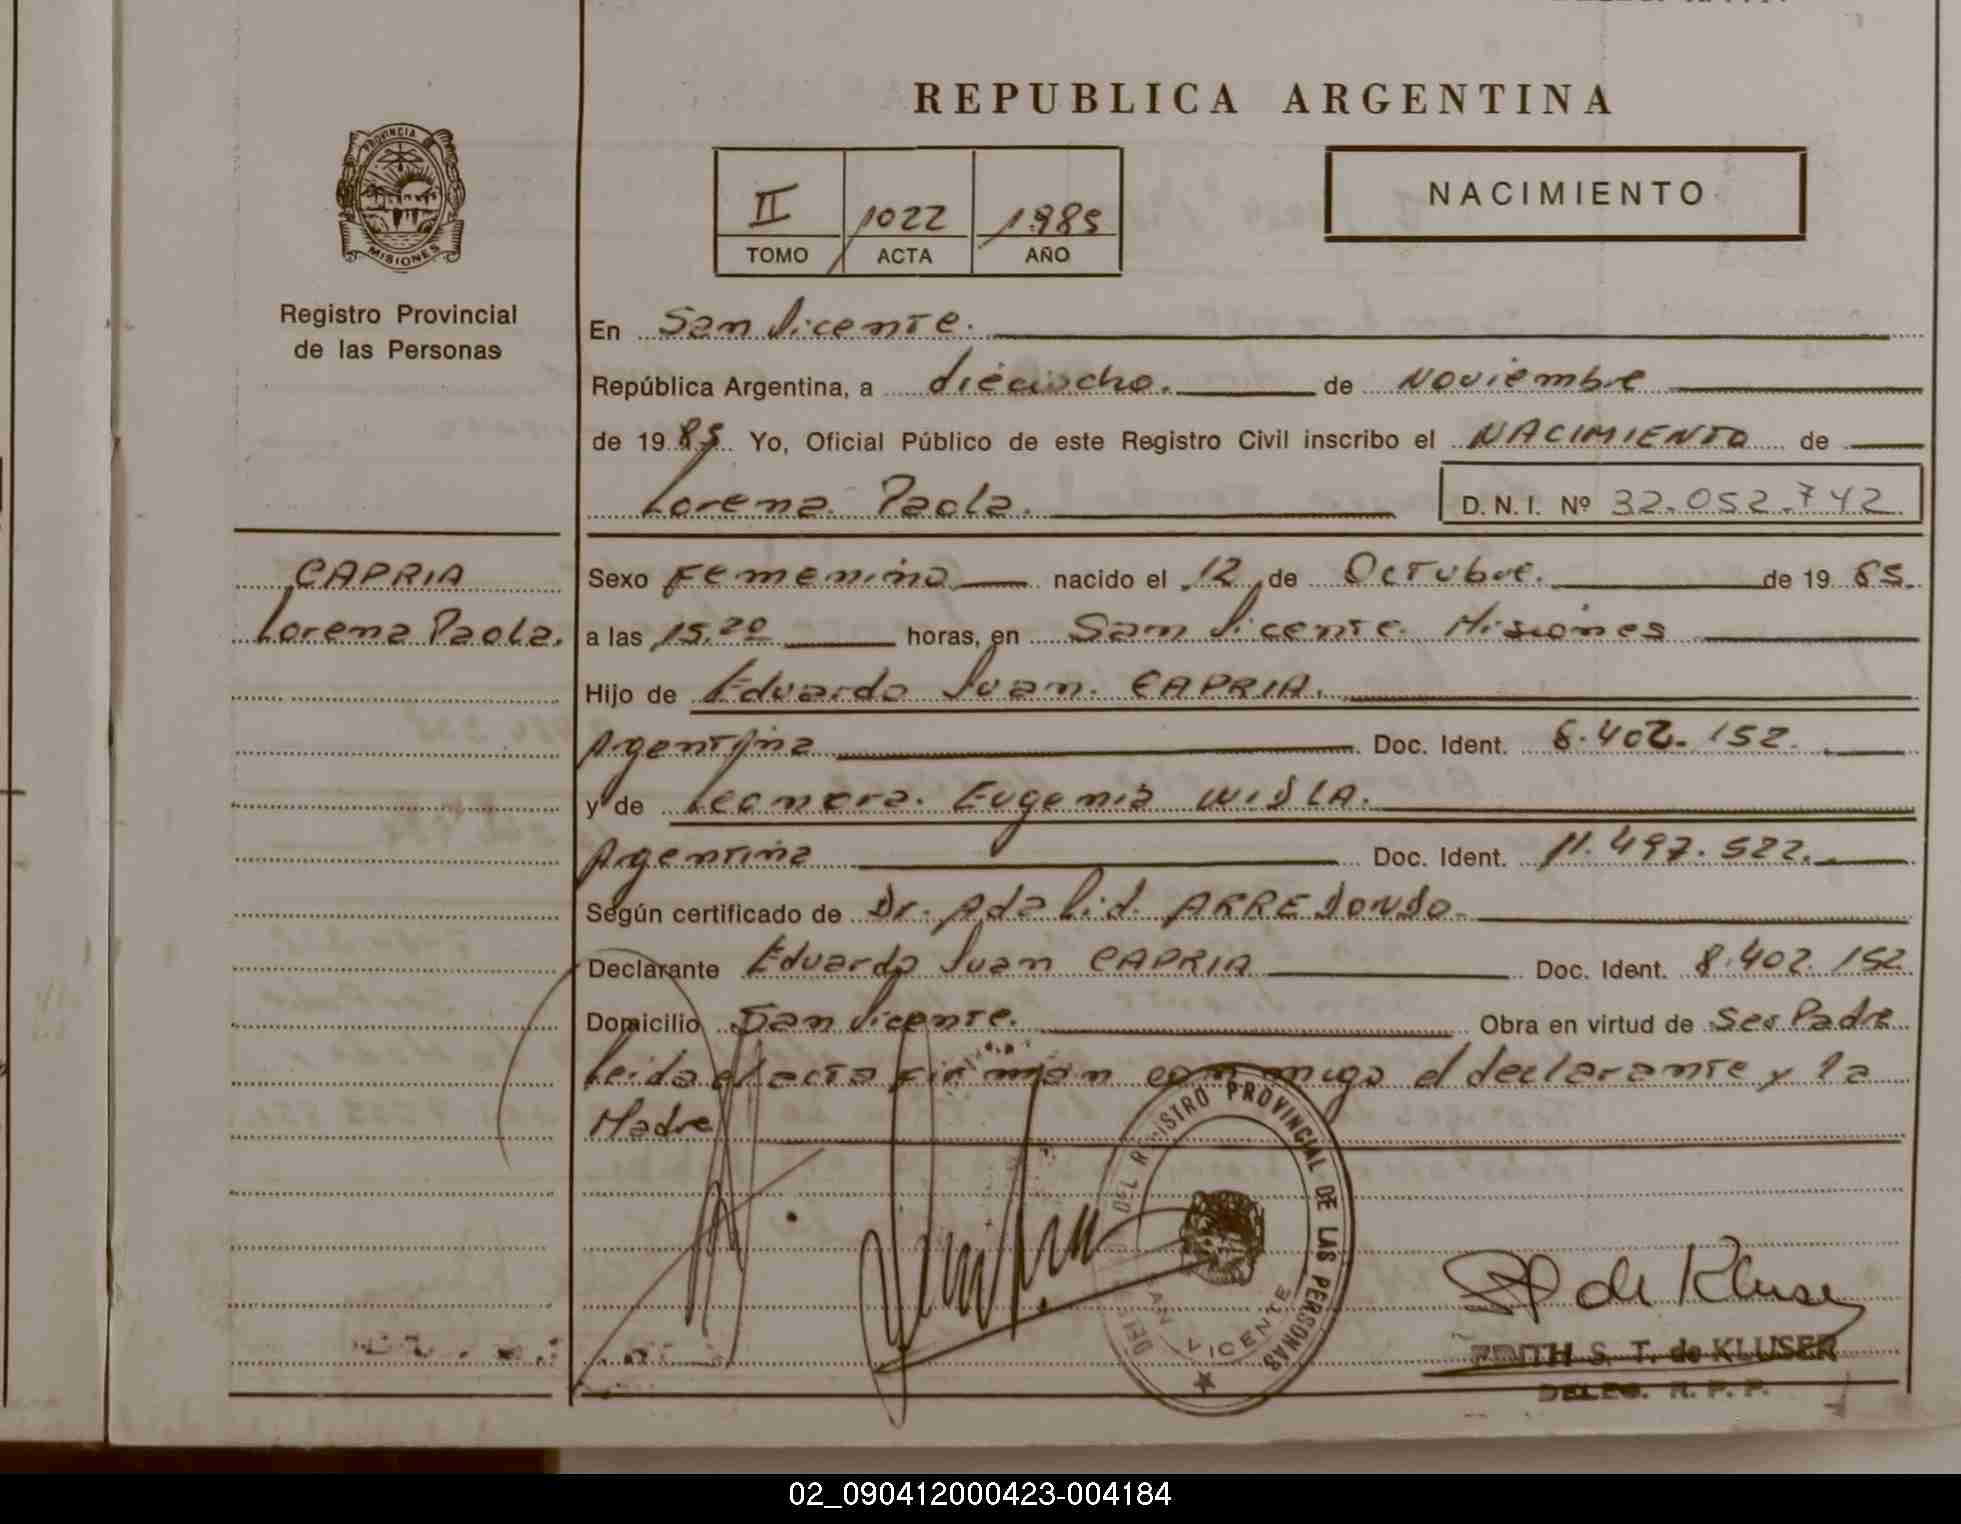 REPUBLICA ARGENTINA
PROVINCIA
MISIONES
II 1022 1985
TOMO ACTA AÑO
NACIMIENTO
Registro Provincial
de las Personas
En San Vicente.
República Argentina, a dieciocho. de Noviembre
de 19 85 Yo, Oficial Público de este Registro Civil inscribo el NACIMIENTO de
Lorena Paola. D. N. I. Nº 32.052.742
CAPRIA
Lorena Paola.
Sexo Femenino nacido el 12 de Octubre. de 19 85.
a las 15,20 horas, en San Vicente. Misiones
Hijo de Eduardo Juan. CAPRIA.
Argentina Doc. Ident. 8.402.152.
y de Leonora. Eugenia WISLA.
Argentina Doc. Ident. 11.497.522.
Según certificado de Dr. Adalid. ARREDONDO.
Declarante Eduardo Juan CAPRIA Doc. Ident. 8.402.152
Domicilio San Vicente. Obra en virtud de Ser Padre
Leida el acta firman conmigo el declarante y la
Madre
DEL REGISTRO PROVINCIAL DE LAS PERSONAS
SAN VICENTE
de Kluser
EDITH S. T. de KLUSER
DELEG. R. P. P.
02_090412000423-004184